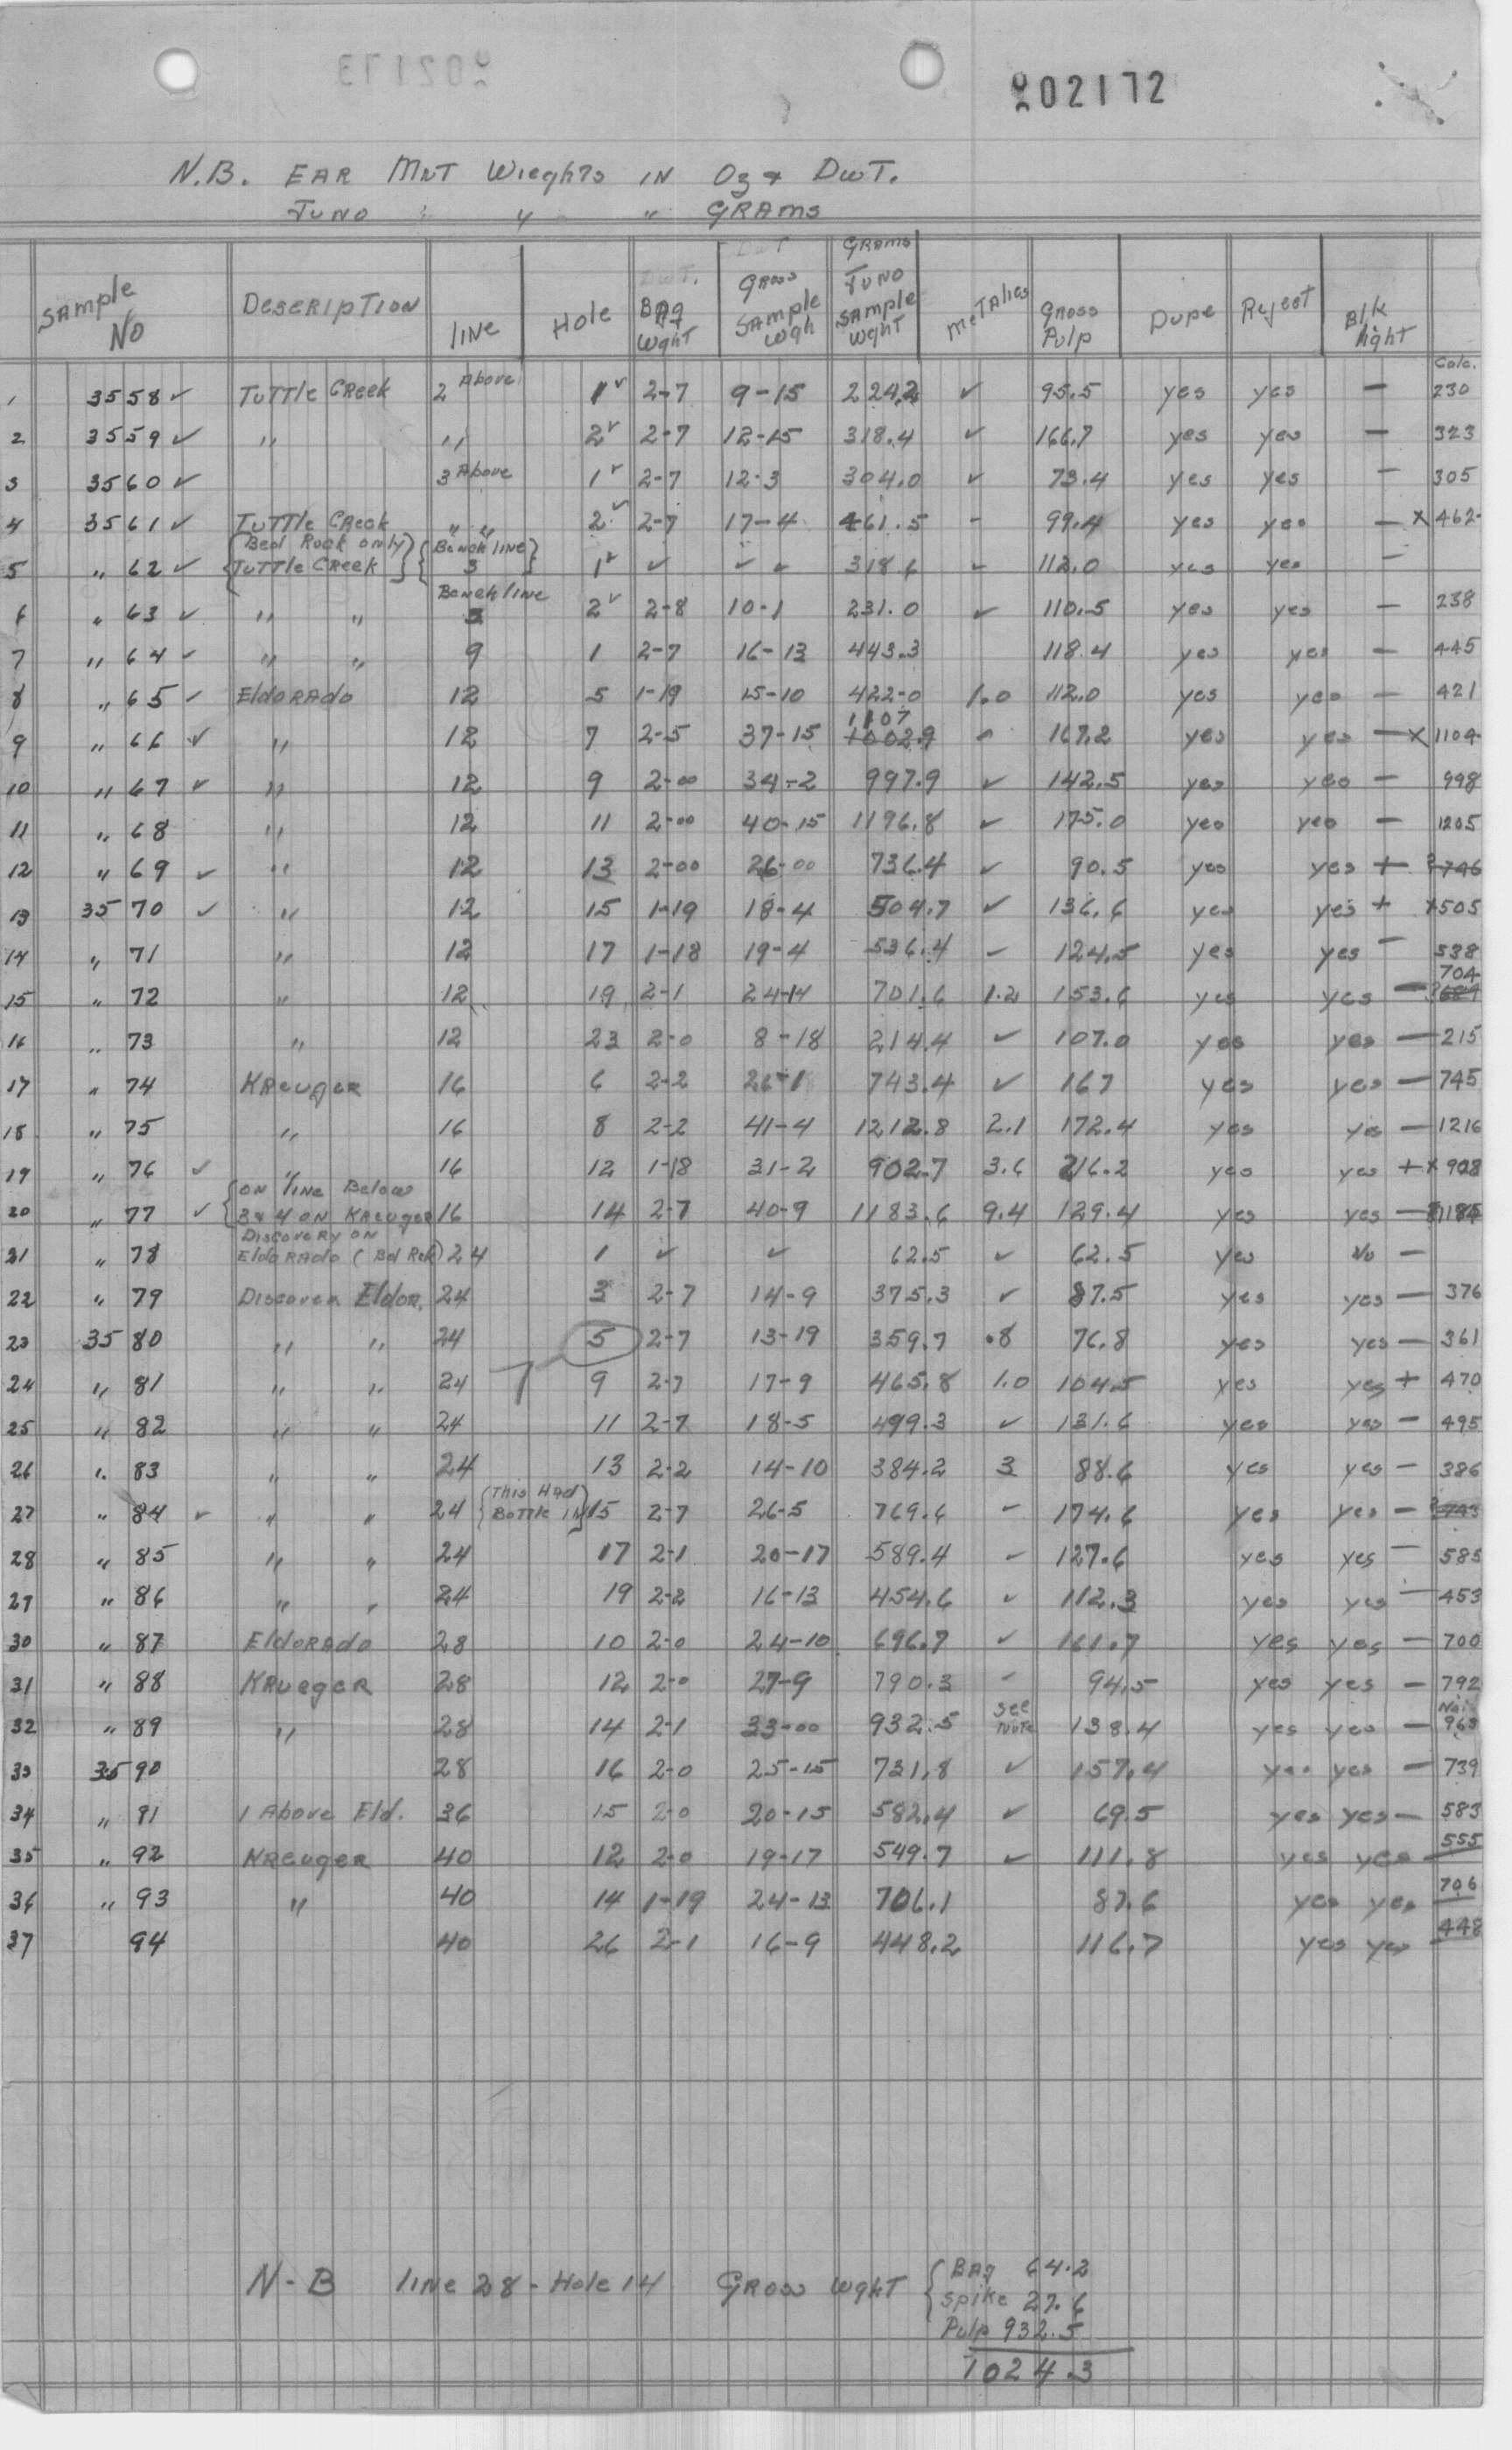 002172
N.B. EAR MNT WIEGHTS IN Oz & DWT.
JUNO " " GRAMS
Sample No DESCRIPTION LINE Hole BAg WghT GROSS SAMPLE Wgh GRAMS JUNO SAMPLE WghT MeTAlics GROSS Pulp DUPE Reject Blk light Calc.
1 3558 ✓ TUTTle CReek 2 Above 1 ✓ 2-7 9-15 224.2 ✓ 95.5 yes yes - 230
2 3559 ✓ " " 2 ✓ 2-7 12-15 318.4 ✓ 166.7 yes yes - 323
3 3560 ✓ 3 Above 1 ✓ 2-7 12-3 304.0 ✓ 73.4 yes yes - 305
4 3561 ✓ TUTTle CReek " " 2 ✓ 2-7 17-4 461.5 - 99.4 yes yes - x 462
5 " 62 ✓ {Bed Rock only TUTTle CReek} {Bench line 3} 1 ✓ ✓ ✓ ✓ 318.6 ✓ 112.0 yes yes -
6 " 63 ✓ " " Bench line 3 2 ✓ 2-8 10-1 231.0 ✓ 110.5 yes yes - 238
7 " 64 ✓ " " 9 1 2-7 16-13 443.3 118.4 yes yes - 445
8 " 65 ✓ EldoRADo 12 5 1-19 15-10 422-0 1.0 112.0 yes yes - 421
9 " 66 ✓ " 12 7 2-5 37-15 1107 1002.9 ✓ 167.2 yes yes - x 1104
10 " 67 ✓ " 12 9 2-00 34-2 997.9 ✓ 142.5 yes yes - 998
11 " 68 " 12 11 2-00 40-15 1196.8 ✓ 175.0 yes yes - 1205
12 " 69 ✓ " 12 13 2-00 26-00 736.4 ✓ 90.5 yes yes + ? 746
13 3570 ✓ " 12 15 1-19 18-4 504.7 ✓ 136.6 yes yes + x 505
14 " 71 " 12 17 1-18 19-4 536.4 - 124.5 yes yes - 538
15 " 72 " 12 19 2-1 24-14 701.6 1.2 153.6 yes yes - 704
16 " 73 " 12 23 2-0 8-18 214.4 ✓ 107.0 yes yes - 215
17 " 74 KReugeR 16 6 2-2 26-1 743.4 ✓ 167 yes yes - 745
18 " 75 " 16 8 2-2 41-4 1212.8 2.1 172.4 yes yes - 1216
19 " 76 ✓ " 16 12 1-18 31-2 902.7 3.6 216.2 yes yes + x 908
20 " 77 ✓ {ON line Below 3 & 4 ON KReugeR 16 14 2-7 40-9 1183.6 9.4 129.4 yes yes -
21 " 78 Discovery ON EldoRADo (Bd Rck) 24 1 ✓ ✓ 62.5 ✓ 62.5 yes No -
22 " 79 Discover Eldor. 24 3 2-7 14-9 375.3 ✓ 87.5 yes yes - 376
23 3580 " " 24 5 2-7 13-19 359.7 .8 76.8 yes yes - 361
24 " 81 " " 24 7 9 2-7 17-9 465.8 1.0 104.5 yes yes + 470
25 " 82 " " 24 11 2-7 18-5 499.3 ✓ 131.6 yes yes - 495
26 " 83 " " 24 13 2-2 14-10 384.2 3 88.6 yes yes - 386
27 " 84 ✓ " " 24 {This HAd BoTTle IN} 15 2-7 26-5 769.6 ✓ 174.6 yes yes - ?
28 " 85 " " 24 17 2-1 20-17 589.4 ✓ 127.6 yes yes - 585
29 " 86 " " 24 19 2-2 16-13 454.6 ✓ 112.3 yes yes - 453
30 " 87 EldoRADo 28 10 2-0 24-10 696.7 ✓ 161.7 yes yes - 700
31 " 88 KRuegeR 28 12 2-0 27-9 790.3 - 94.5 yes yes - 792
32 " 89 " 28 14 2-1 33-00 932.5 see Note 138.4 yes yes - No. 963
33 3590 28 16 2-0 25-15 731.8 ✓ 157.4 yes yes - 739
34 " 91 1 Above Eld. 36 15 2-0 20-15 582.4 ✓ 69.5 yes yes - 583
35 " 92 KReugeR 40 12 2-0 19-17 549.7 ✓ 111.8 yes yes - 555
36 " 93 " 40 14 1-19 24-13 706.1 87.6 yes yes - 706
37 94 40 26 2-1 16-9 448.2 116.7 yes yes - 448
N-B line 28 - Hole 14 GRoss WghT { BAg 64.2
Spike 27.6
Pulp 932.5
1024.3